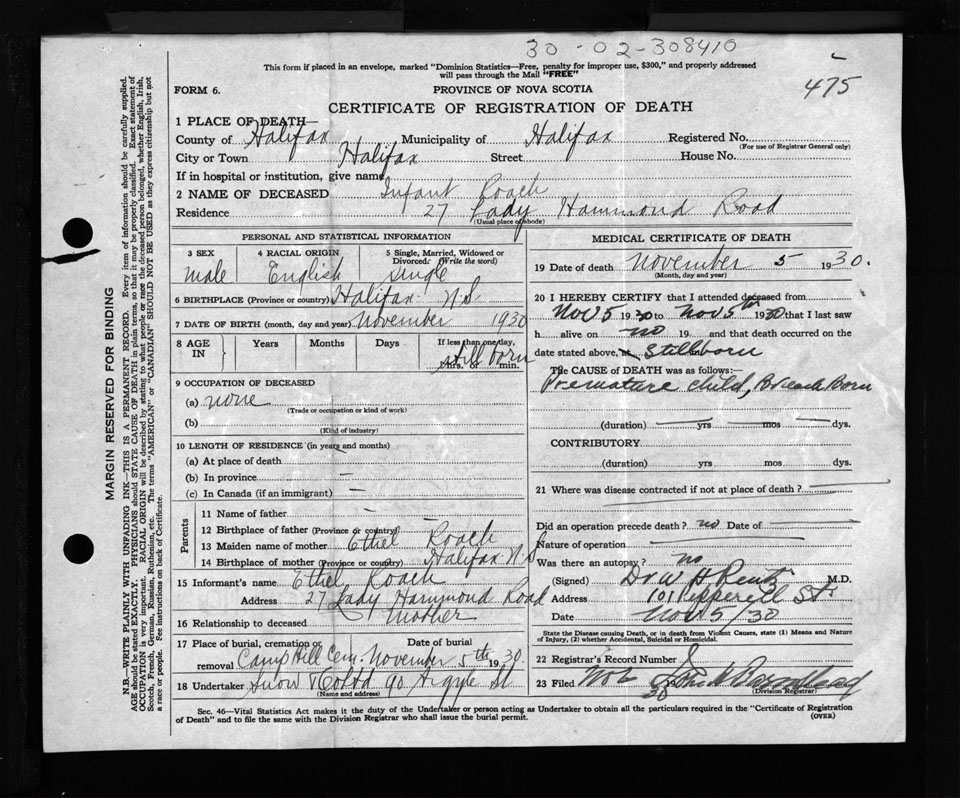 30-02-308410
This form if placed in an envelope, marked "Dominion Statistics—Free, penalty for improper use, $300," and properly addressed
will pass through the Mail "FREE"
475
FORM 6.
PROVINCE OF NOVA SCOTIA
CERTIFICATE OF REGISTRATION OF DEATH
1 PLACE OF DEATH
County of Halifax Municipality of Halifax Registered No.
(For use of Registrar General only)
City or Town Halifax Street House No.
If in hospital or institution, give name
2 NAME OF DECEASED Infant Roach
Residence 27 Lady Hammond Road
(Usual place of abode)
PERSONAL AND STATISTICAL INFORMATION
3 SEX 4 RACIAL ORIGIN 5 Single, Married, Widowed or
Divorced (Write the word)
male English single
6 BIRTHPLACE (Province or country) Halifax N.S.
7 DATE OF BIRTH (month, day and year) November 1930
8 AGE IN Years Months Days If less than one day,
still born
hrs. or min.
9 OCCUPATION OF DECEASED
(a) none
(Trade or occupation or kind of work)
(b)
(Kind of industry)
10 LENGTH OF RESIDENCE (in years and months)
(a) At place of death —
(b) In province —
(c) In Canada (if an immigrant) —
Parents
11 Name of father — —
12 Birthplace of father (Province or country)
13 Maiden name of mother Ethel Roach
14 Birthplace of mother (Province or country) Halifax N.S
15 Informant's name Ethel Roach
Address 27 Lady Hammond Road
16 Relationship to deceased Mother
17 Place of burial, cremation or Date of burial
removal Camp Hill Cem. November 5th 1930.
18 Undertaker Snow & Co Ltd 90 Argyle St
(Name and address)
MEDICAL CERTIFICATE OF DEATH
19 Date of death November 5 1930.
(Month, day and year)
20 I HEREBY CERTIFY that I attended deceased from
Nov 5 1930 to Nov 5th 1930 that I last saw
h alive on no 19 and that death occurred on the
date stated above, at Stillborn
The CAUSE of DEATH was as follows:
Premature child, Breech Born
(duration) yrs mos dys.
CONTRIBUTORY
(duration) yrs mos dys.
21 Where was disease contracted if not at place of death?
Did an operation precede death? no Date of
Nature of operation
Was there an autopsy? no
(Signed) Dr W H M.D.
Address 101 Pepperell St
Date Nov 5/30
State the Disease causing Death, or in death from Violent Causes, state (1) Means and Nature
of Injury, (2) whether Accidental, Suicidal or Homicidal.
22 Registrar's Record Number
23 Filed Nov
30
(Division Registrar)
Sec. 46—Vital Statistics Act makes it the duty of the Undertaker or person acting as Undertaker to obtain all the particulars required in the "Certificate of Registration
of Death" and to file the same with the Division Registrar who shall issue the burial permit.
(OVER)
MARGIN RESERVED FOR BINDING
N.B.—WRITE PLAINLY WITH UNFADING INK—THIS IS A PERMANENT RECORD. Every item of information should be carefully supplied.
AGE should be stated EXACTLY. PHYSICIANS should STATE CAUSE OF DEATH in plain terms, so that it may be properly classified. Exact statement of
OCCUPATION is very important. RACIAL ORIGIN will be described by stating to what people or race the deceased person belonged, whether English, Irish,
Scotch, French, German, Russian, Ruthenian, etc. The terms "AMERICAN" or "CANADIAN" SHOULD NOT BE USED as they express citizenship but not
a race or people. See instructions on back of Certificate.